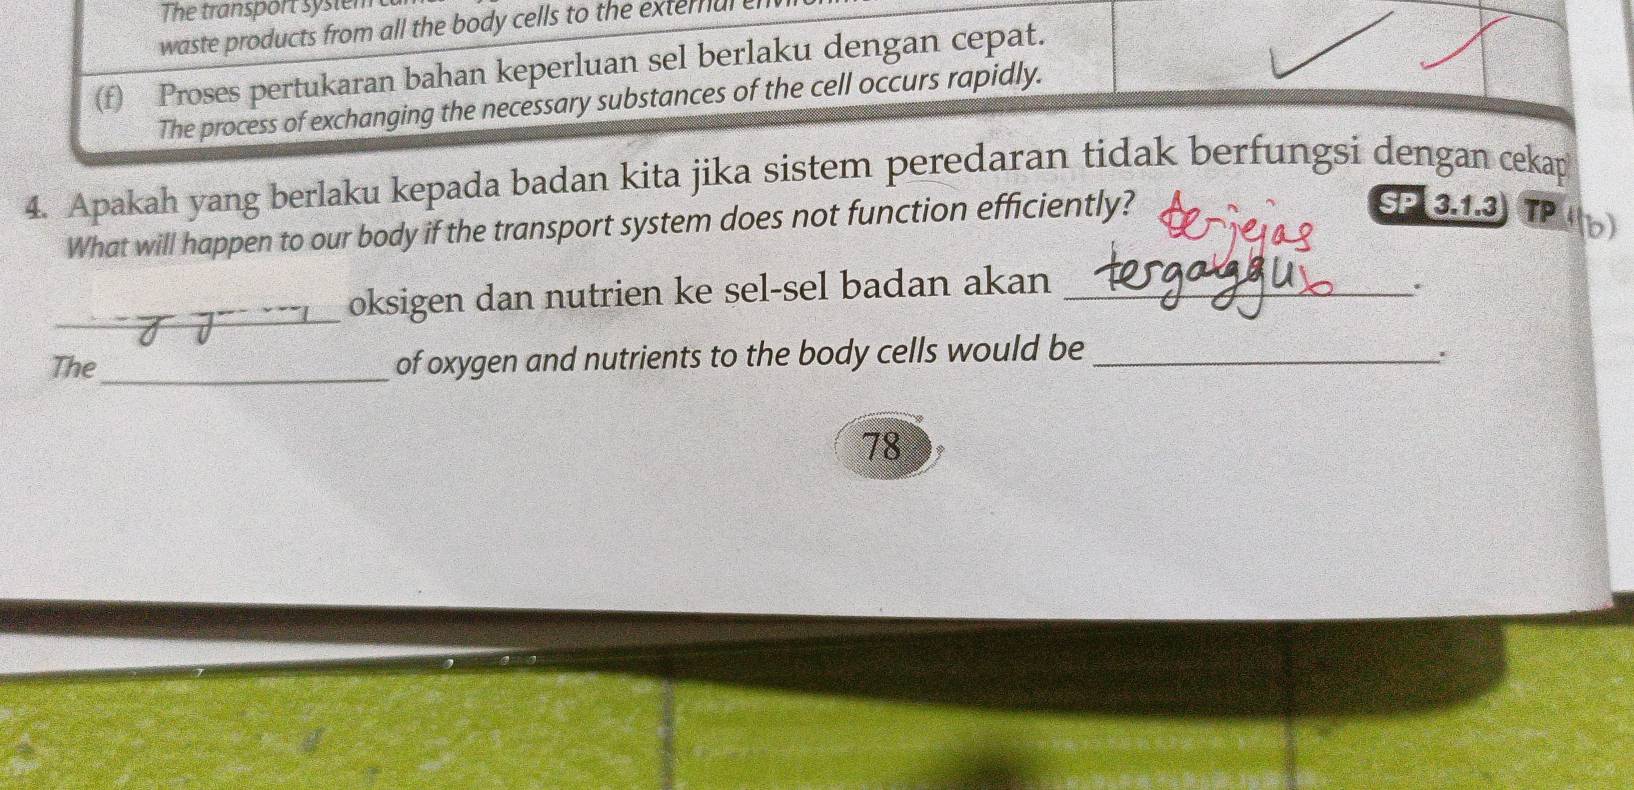 The transport system
waste products from all the body cells to the external
(f) Proses pertukaran bahan keperluan sel berlaku dengan cepat.
The process of exchanging the necessary substances of the cell occurs rapidly.
4. Apakah yang berlaku kepada badan kita jika sistem peredaran tidak berfungsi dengan cekap
What will happen to our body if the transport system does not function efficiently? SP 3.1.3 TP
terjejas
oksigen dan nutrien ke sel-sel badan akan ____________.
The ____________ of oxygen and nutrients to the body cells would be ____________.
78